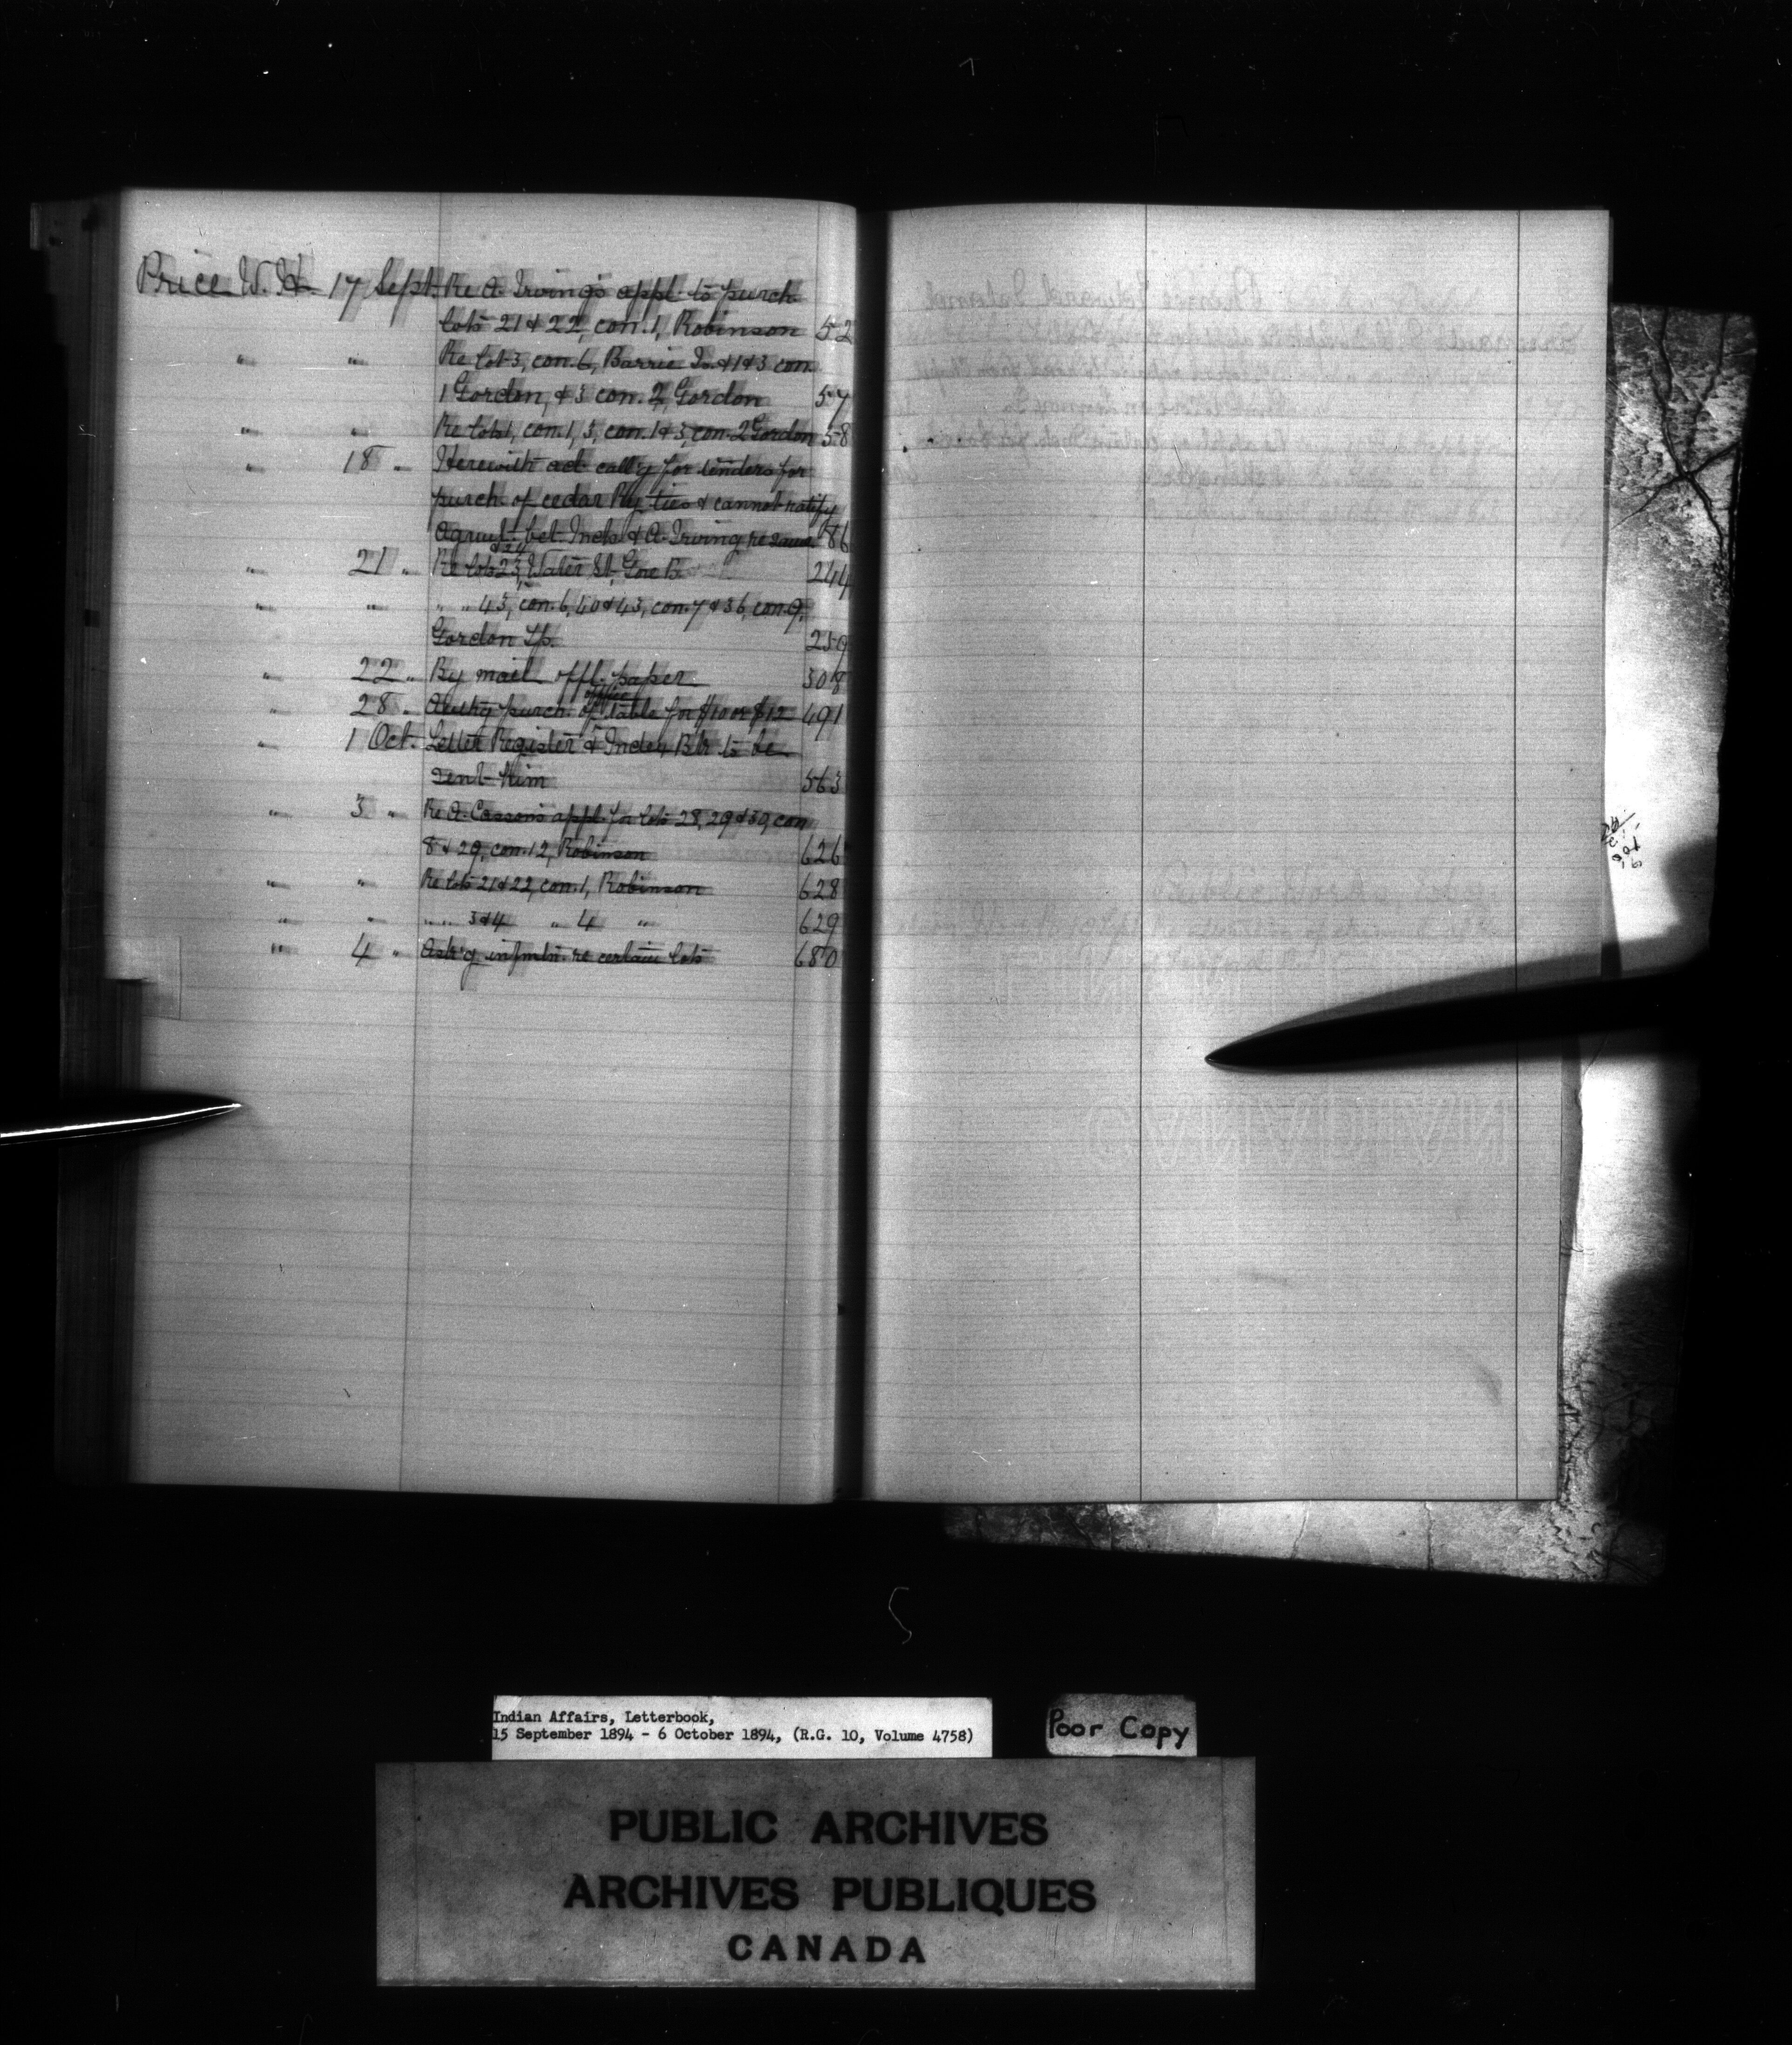 Price W. H. 17 Sept. Re A. Irving's appl. to purch
lots 21 & 22, con. 1, Robinson 52
" " Re lot 3, con. 6, Barrie Is. & 1 & 3 con
1 Gordon, & 3 con. 2, Gordon 57
" " Re lots 1, con. 1, 3, con. 1 & 3, con. 2 Gordon 58
" 18 " Herewith ad. call'g for tenders for
purch. of cedar Ry ties & cannot ratify
Agrmt. bet. Inds & A. Irving re same 86
" 21 " Re lots 23 & 24, Water St., Gore B. 244
" " " " 43, con. 6, 40 & 43, con. 7 & 36, con. 9,
Gordon Tp. 259
" 22 " By mail offl. paper 308
" 28 " Authg purch. of office table for $10 or $12 491
" 1 Oct. Letter Register & Index Bk to be
sent him 563
" 3 " Re A. Casson's appl. for lots 28, 29 & 30, con
8 & 29, con. 12, Robinson 626
" " Re lots 21 & 22, con. 1, Robinson 628
" " " " 3 & 4 " 4 " 629
" 4 " Ask'g infmtn. re certain lots 680
Indian Affairs, Letterbook,
15 September 1894 - 6 October 1894, (R.G. 10, Volume 4758)
Poor Copy
PUBLIC ARCHIVES
ARCHIVES PUBLIQUES
CANADA